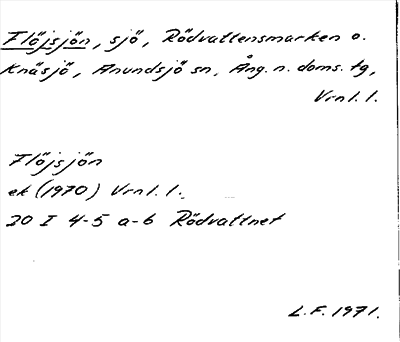 Flöjsjön, sjö, Rödvattensmarken o.
Knäsjö, Anundsjö sn, Ång. n. doms. tg,
Vrnl. l.
Flöjsjön
ek (1970) Vrnl. l.
20 I 4-5 a-b Rödvattnet
L.F. 1971.